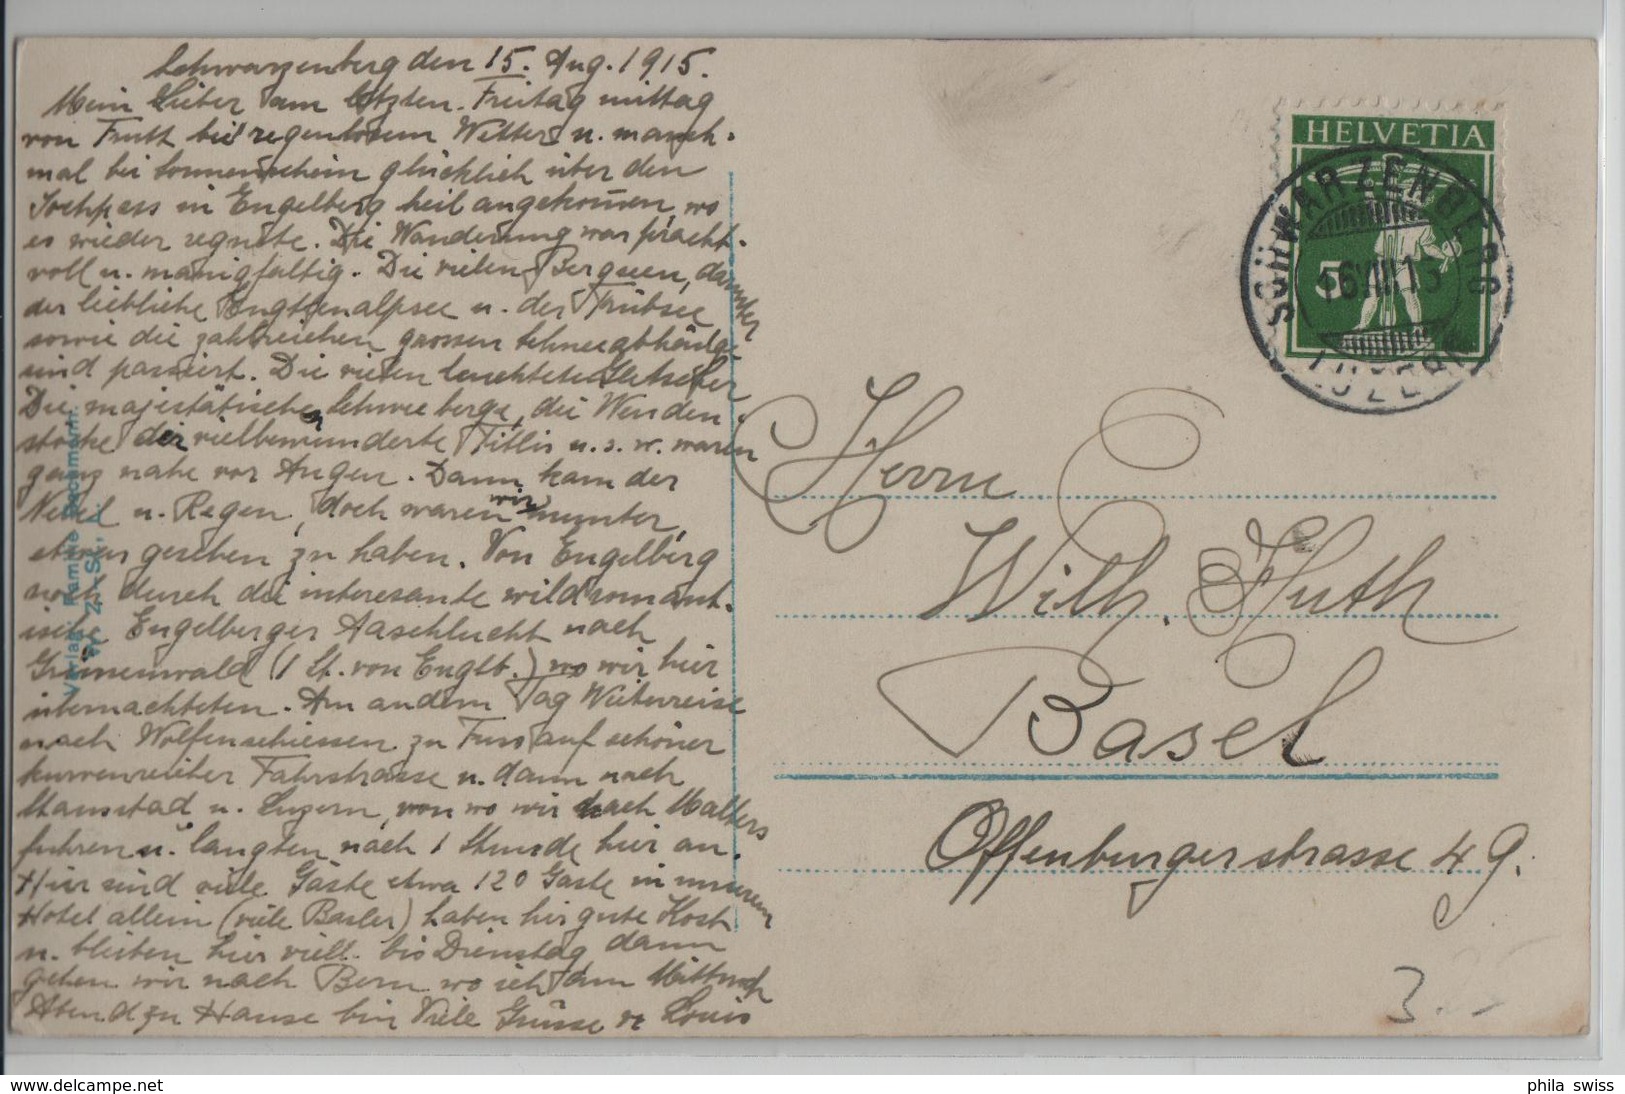 Schwarzenberg den 15. Aug. 1915.
Mein Lieber am letzten Freitag mittag
von Frutt bei regenlosem Wetter u. manch-
mal bei Sonnenschein glücklich über den
Jochpass in Engelberg heil angekommen, wo
es wieder regnete. Die Wanderung war pracht-
voll u. manigfaltig. Die vielen Bergseen, darunter
der liebliche Engstlenalpsee u. der Trübsee
sowie die zahlreichen grossen Schneeabhänge
sind passiert. Die vielen leuchteten Gletscher
Die majestätischen Schneeberge, die Wenden
stöcke der vielbewunderte Titlis u. s. w. waren
ganz nahe vor Augen. Dann kam der
Nebel u. Regen, doch waren wir munter,
etwas gesehen zu haben. Von Engelberg
noch durch die interesante wildromant-
ische Engelberger Aaschlucht nach
Grünenwald (1 St. von Englb.) wo wir hier
übernachteten. Am andern Tag Weiterreise
nach Wolfenschiessen zu Fuss auf schöner
kurvenreicher Fahrstrasse u. dann nach
Stansstad u. Luzern, von wo wir nach Malters
fuhren u. langten nach 1 Stunde hier an.
Hier sind viele Gäste etwa 120 Gäste in unserem
Hotel allein (viele Basler) haben hier gute Kost
u. bleiben hier viell. bis Dienstag dann
gehen wir nach Bern wo ich am Mittwoch
Abend zu Hause bin Viele Grüsse v Louis
Verlag Familie
HELVETIA
5
SCHWARZENBERG
16.VIII.15
LUZERN
Herrn
Wilh. Huth
Basel
Offenburgerstrasse 49.
3.-
www.delcampe.net
phila swiss